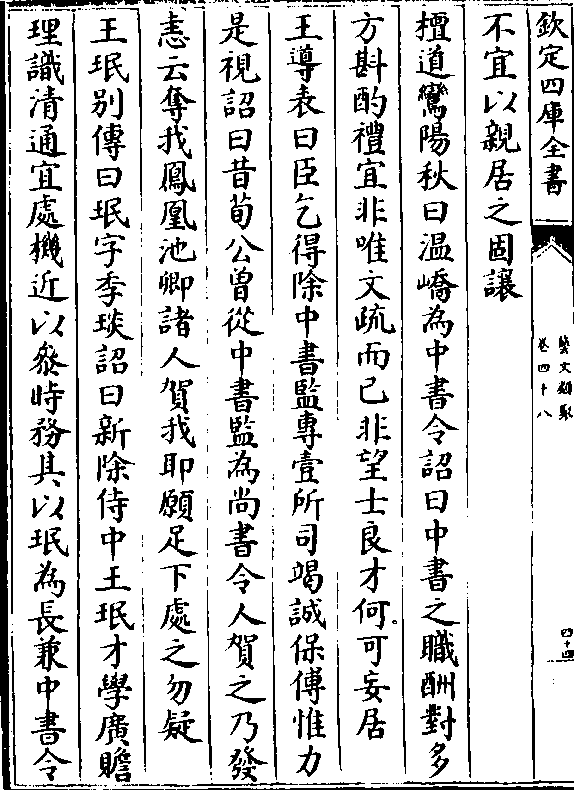 欽定四庫全書
藝文類聚
卷四十八
四十四
不宜以親居之固讓
檀道鸞陽秋曰温嶠為中書令詔曰中書之職酬對多
方斟酌禮宜非唯文疏而已非望士良才何可妄居
王導表曰臣乞得除中書監專壹所司竭誠保傅惟力
是視詔曰昔荀公曾從中書監為尚書令人賀之乃發
恚云奪我鳳凰池卿諸人賀我耶願足下處之勿疑
王珉別傳曰珉字季琰詔曰新除侍中王珉才學廣贍
理識清通宜處機近以叅時務其以珉為長兼中書令